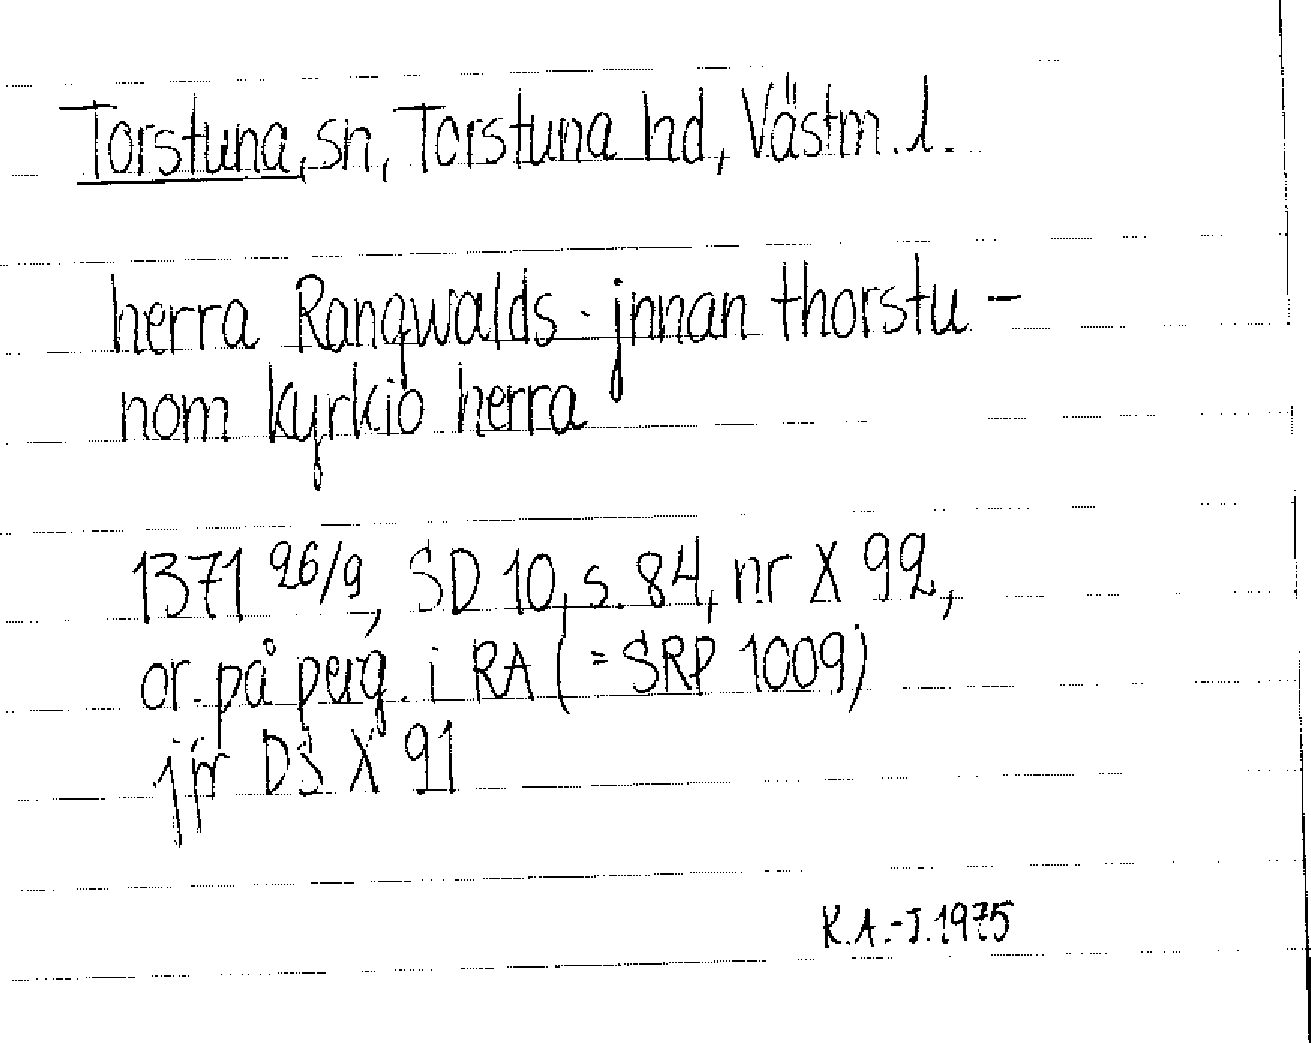 Torstuna, sn, Torstuna hd, Västm. l.
herra Rangwalds jnnan thorstu-
nom kyrkio herra
1371 26/9, SD 10, s. 84, nr X 92,
or. på perg. i RA (= SRP 1009)
jfr DS X 91
K.A.-J. 1975